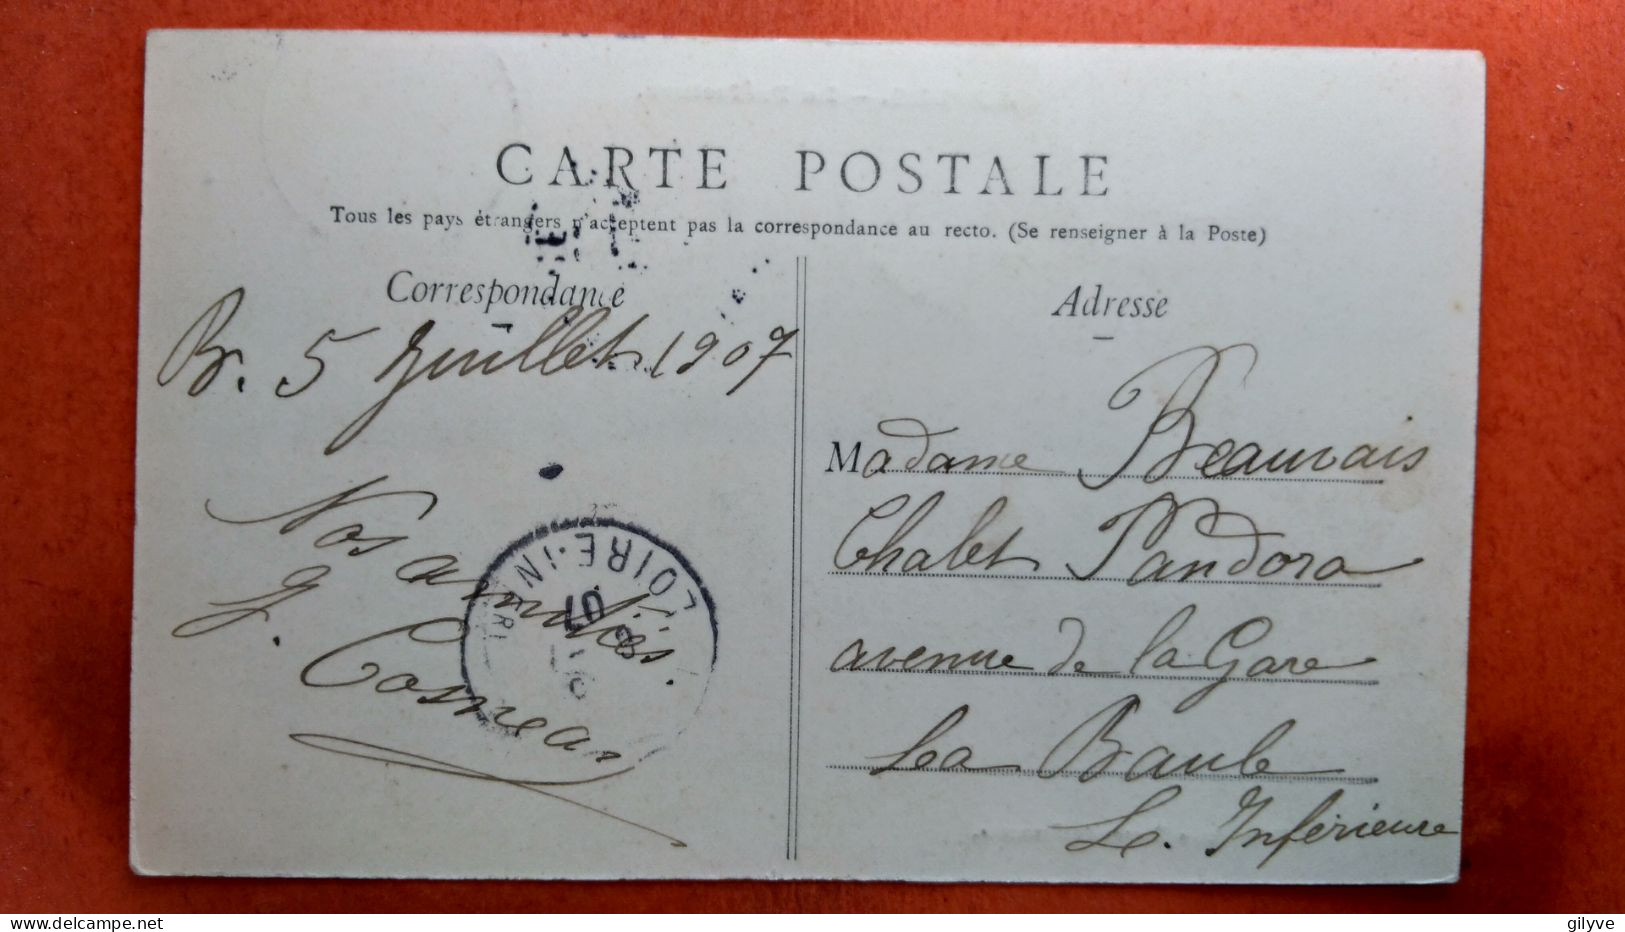 CARTE POSTALE
Tous les pays étrangers n'acceptent pas la correspondance au recto. (Se renseigner à la Poste)
Correspondance
B. 5 Juillet 1907
Nos amitiés.
G. Cosneau
LOIRE-INFERI
07
Adresse
Madame Beauvais
Chalet Pandora
avenue de la Gare
La Baule
L. Inférieure
gilyve